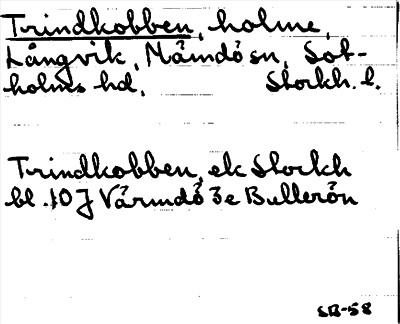 Trindkobben, holme,
Långvik, Nämdö sn, Sot-
holms hd, Storkh. l.
Trindkobben, ek Storkh
bl. 10J Värmdö 3e Bullerön
SB-58